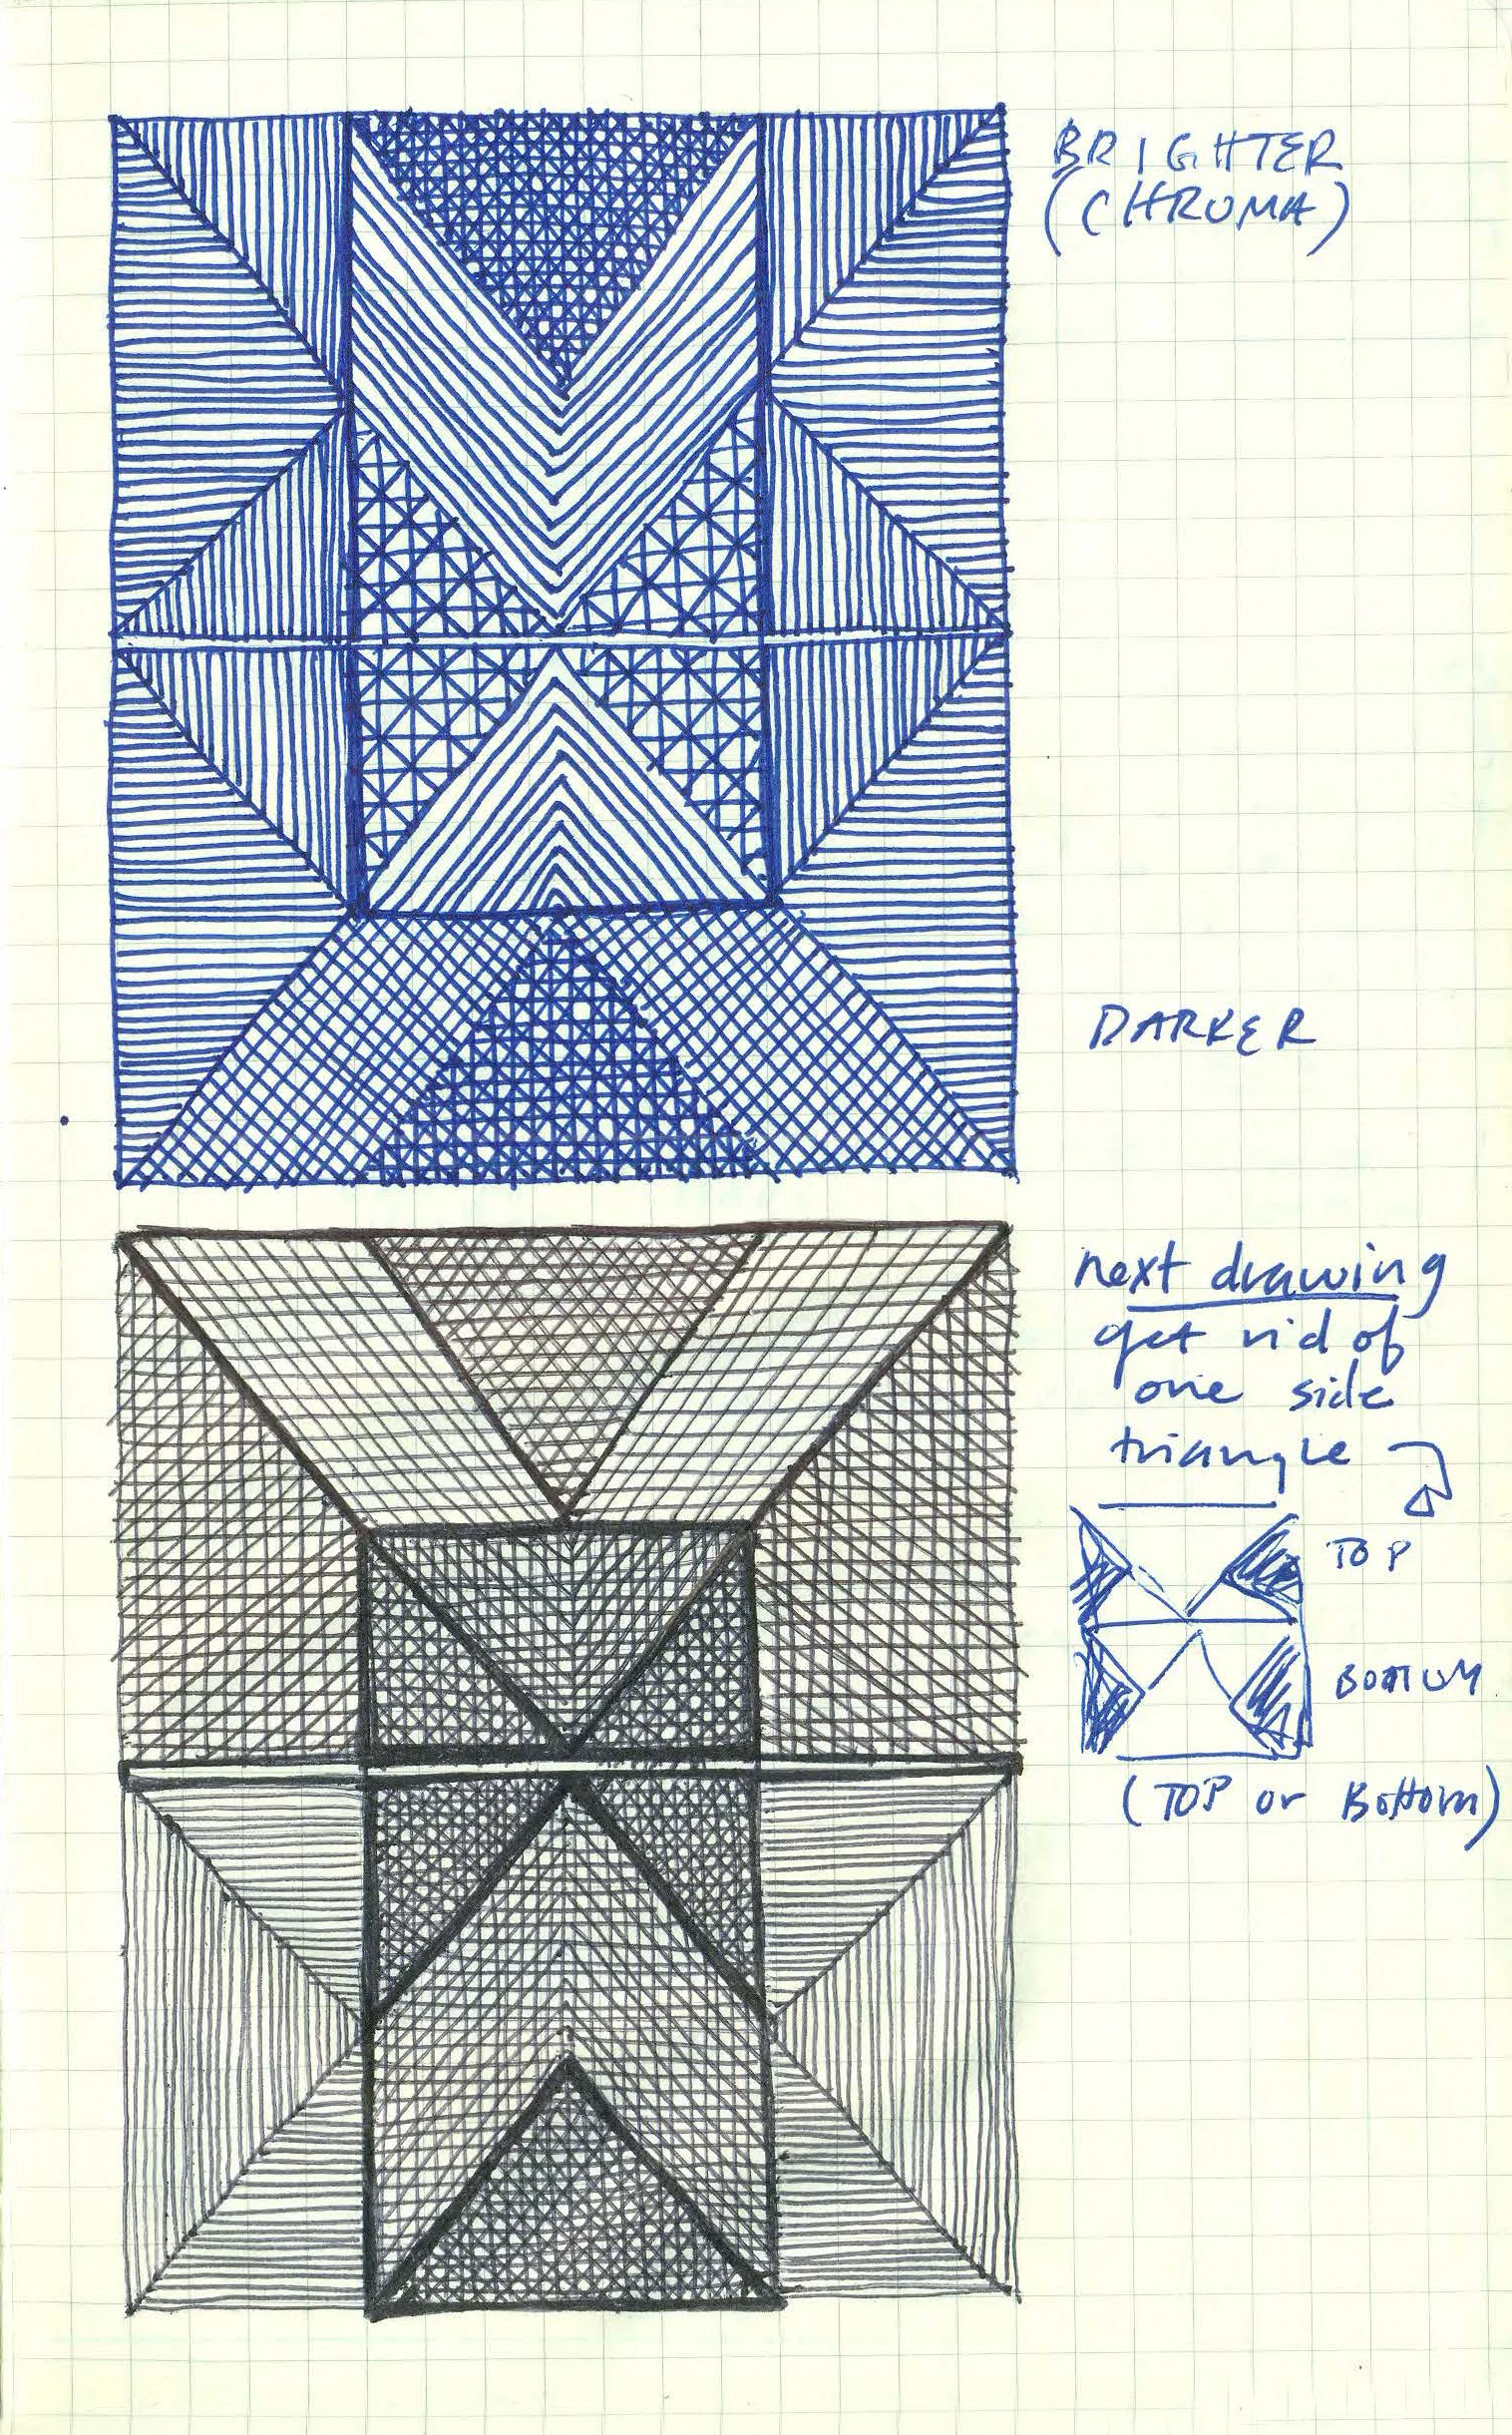 BRIGHTER
(CHROMA)
DARKER
next drawing
get rid of
one side
triangle
TOP
BOTTOM
(TOP or Bottom)